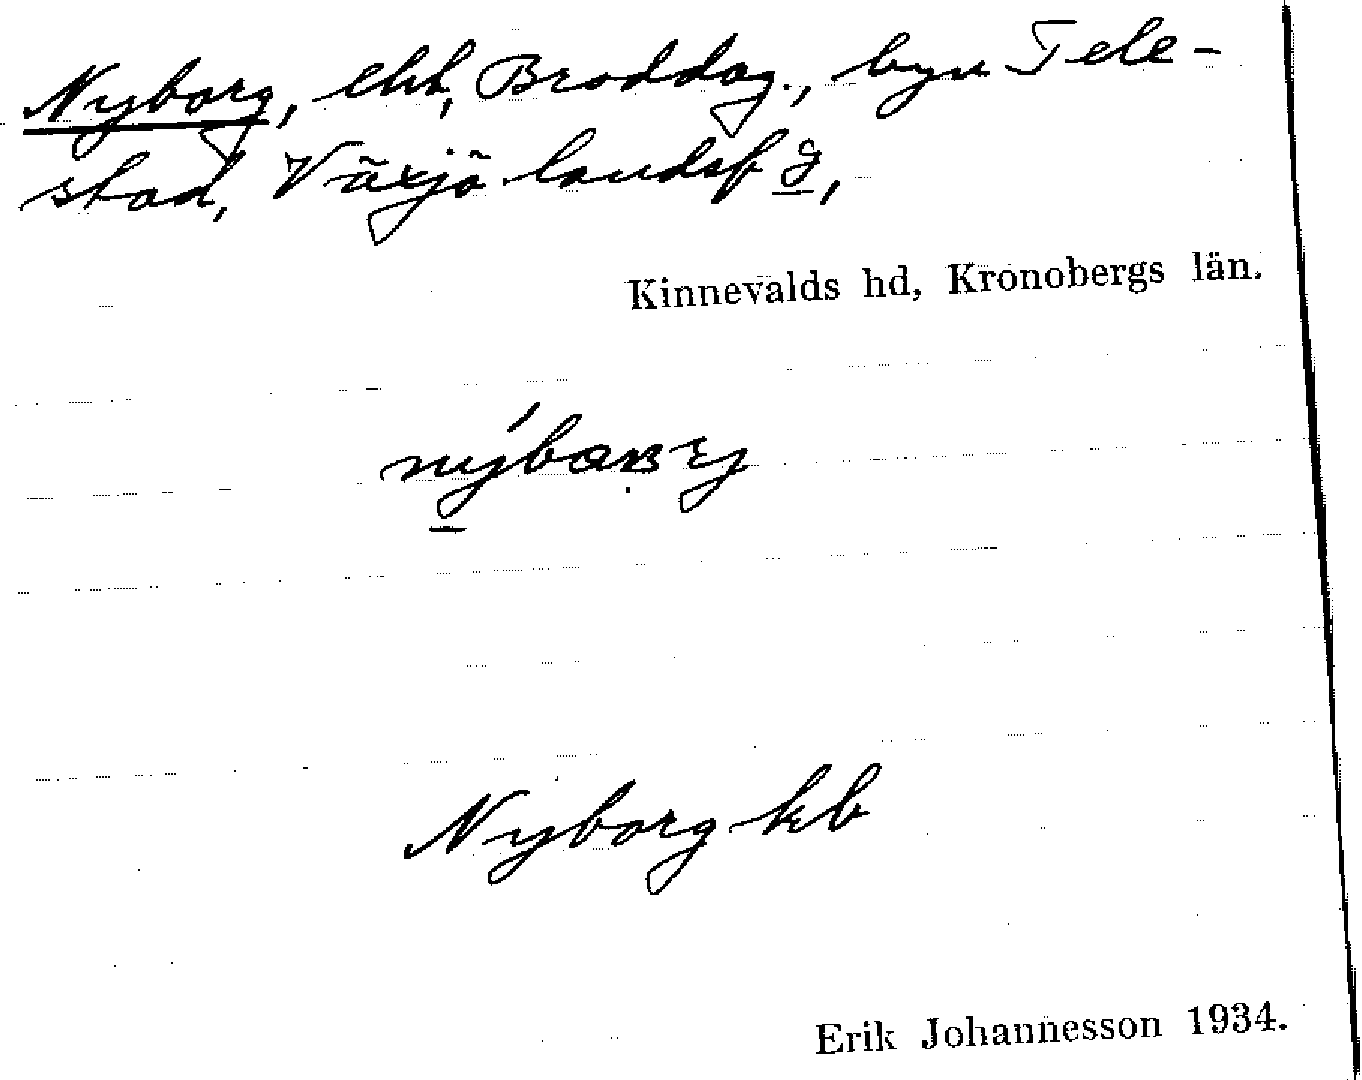 Nyborg, lht, Broddag., byn Tele-
stad, Växjö landsf g,
Kinnevalds hd, Kronobergs län.
Nyborg kb
Erik Johannesson 1934.